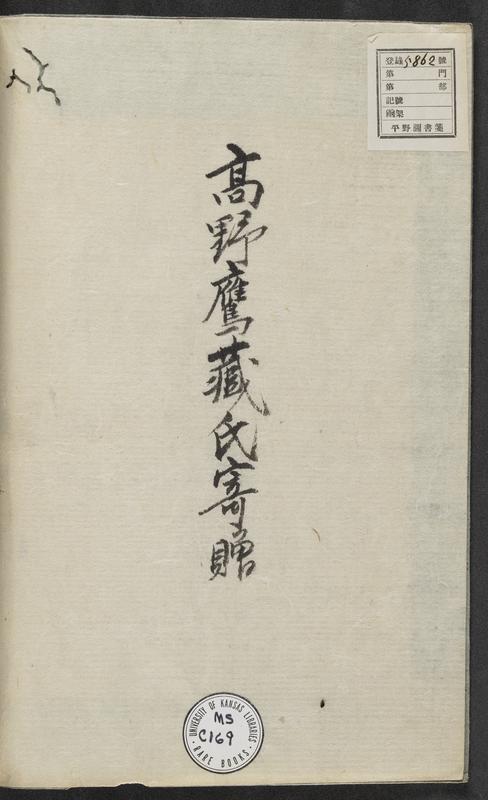 登録 5862 號
第 門
第 部
記號
凾架
平野圖書箋
髙野鷹藏氏寄贈
UNIVERSITY OF KANSAS LIBRARIES
MS
C169
RARE BOOKS